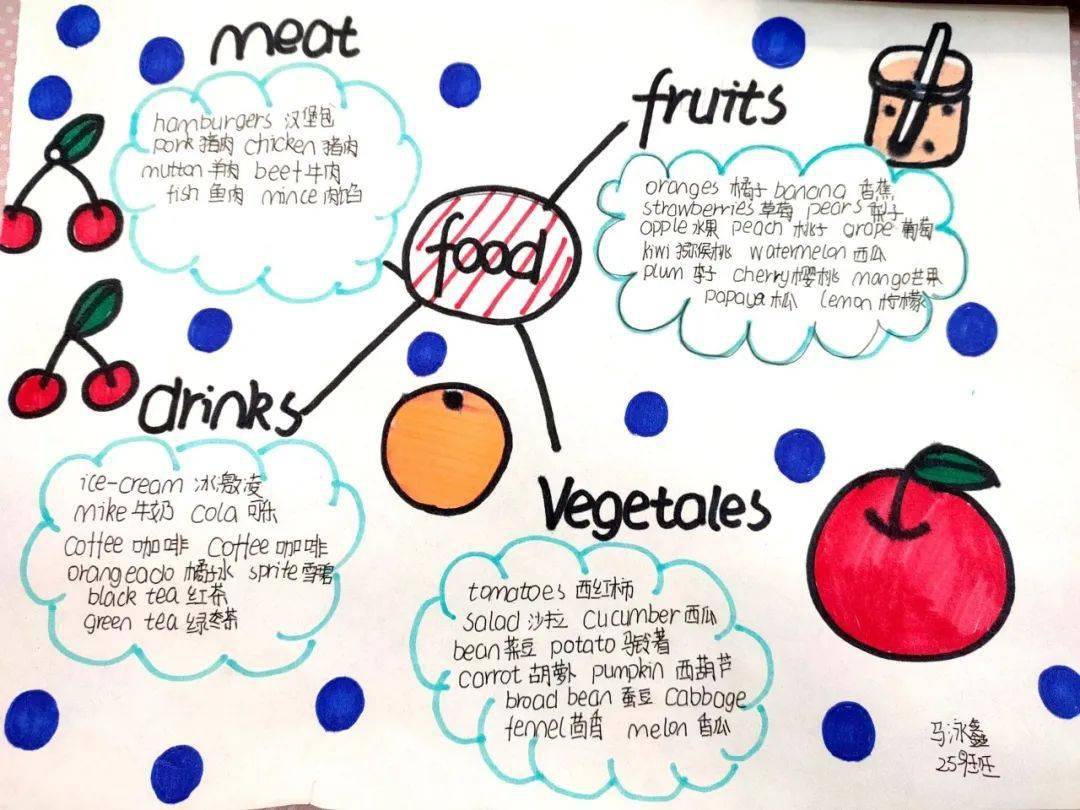 meat
hamburgers 汉堡包
pork 猪肉 chicken 猪肉
mutton 羊肉 beef 牛肉
fish 鱼肉 mince 肉馅
fruits
oranges 橘子 banana 香蕉
strawberries 草莓 pears 梨子
apple 水果 peach 桃子 grape 葡萄
kiwi 猕猴桃 watermelon 西瓜
plum 李子 cherry 樱桃 mango 芒果
papaya 木瓜 lemon 柠檬
food
drinks
ice-cream 冰激凌
mike 牛奶 cola 可乐
coffee 咖啡 coffee 咖啡
orangeado 橘子水 sprite 雪碧
black tea 红茶
green tea 绿茶
Vegetales
tomatoes 西红柿
salad 沙拉 cucumber 西瓜
bean 菜豆 potato 马铃薯
carrot 胡萝卜 pumpkin 西葫芦
broad bean 蚕豆 cabbage
fennel 茴香 melon 香瓜
马泳鑫
259班